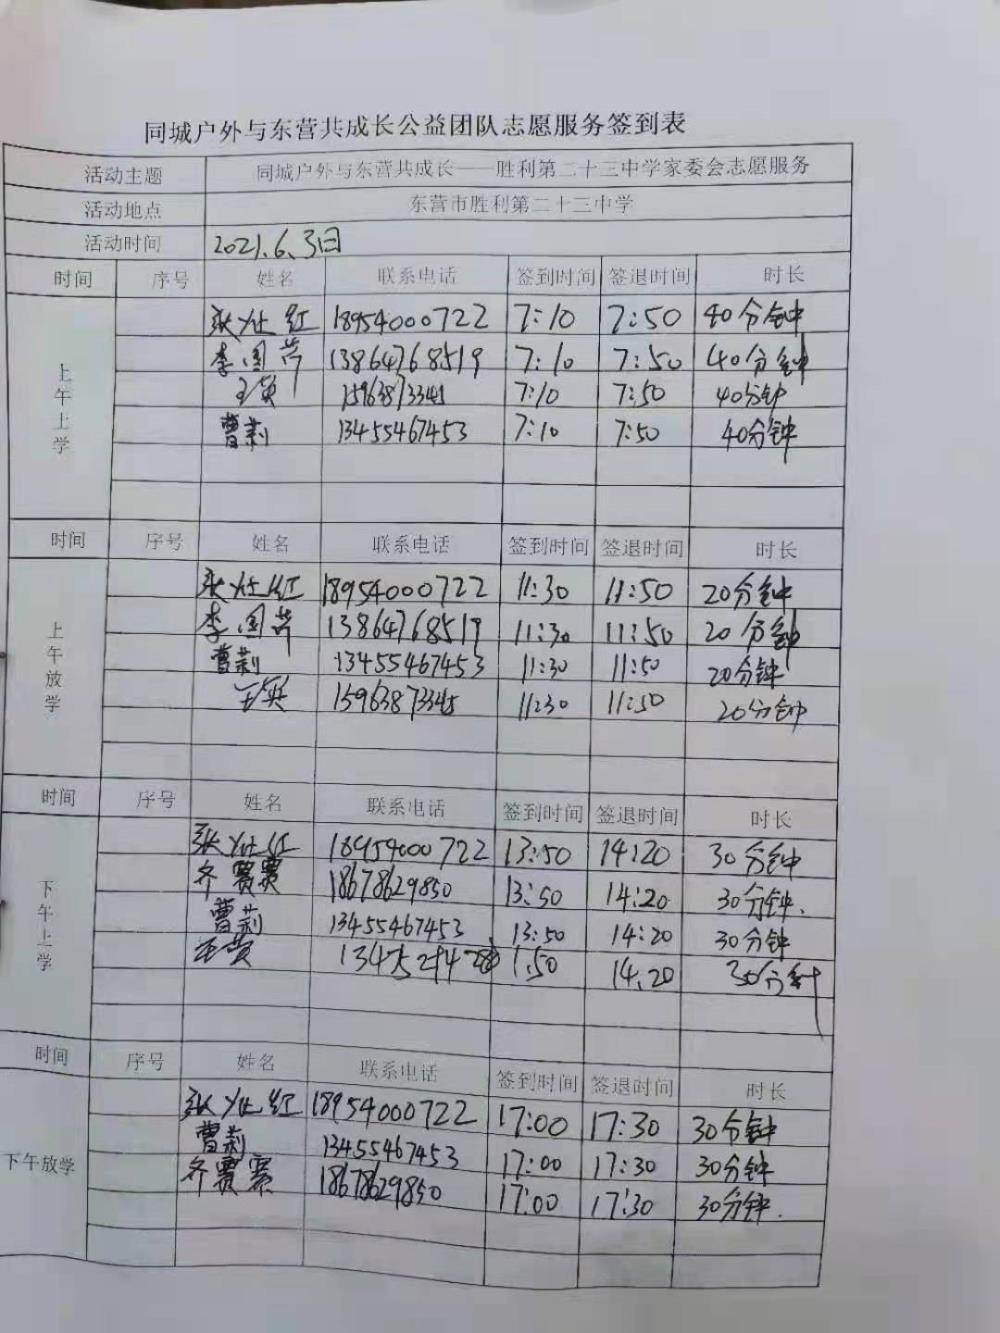 同城户外与东营共成长公益团队志愿服务签到表
活动主题 同城户外与东营共成长——胜利第二十三中学家委会志愿服务
活动地点 东营市胜利第二十三中学
活动时间 2021.6.3日
时间 序号 姓名 联系电话 签到时间 签退时间 时长
上午上学
张 红 18954000722 7:10 7:50 40分钟
李国芳 13864768519 7:10 7:50 40分钟
王英 15963873345 7:10 7:50 40分钟
曹莉 13455467453 7:10 7:50 40分钟
时间 序号 姓名 联系电话 签到时间 签退时间 时长
上午放学
张 红 18954000722 11:30 11:50 20分钟
李国芳 13864768519 11:30 11:50 20分钟
曹莉 13455467453 11:30 11:50 20分钟
王英 15963873345 11:30 11:50 20分钟
时间 序号 姓名 联系电话 签到时间 签退时间 时长
下午上学
张 红 18954000722 13:50 14:20 30分钟
齐赛赛 18678629850 13:50 14:20 30分钟.
曹莉 13455467453 13:50 14:20 30分钟
1:50 14.20 30分钟
时间 序号 姓名 联系电话 签到时间 签退时间 时长
下午放学
张 红 18954000722 17:00 17:30 30分钟
曹莉 13455467453 17:00 17:30 30分钟
齐赛赛 18678629850 17:00 17:30 30分钟.